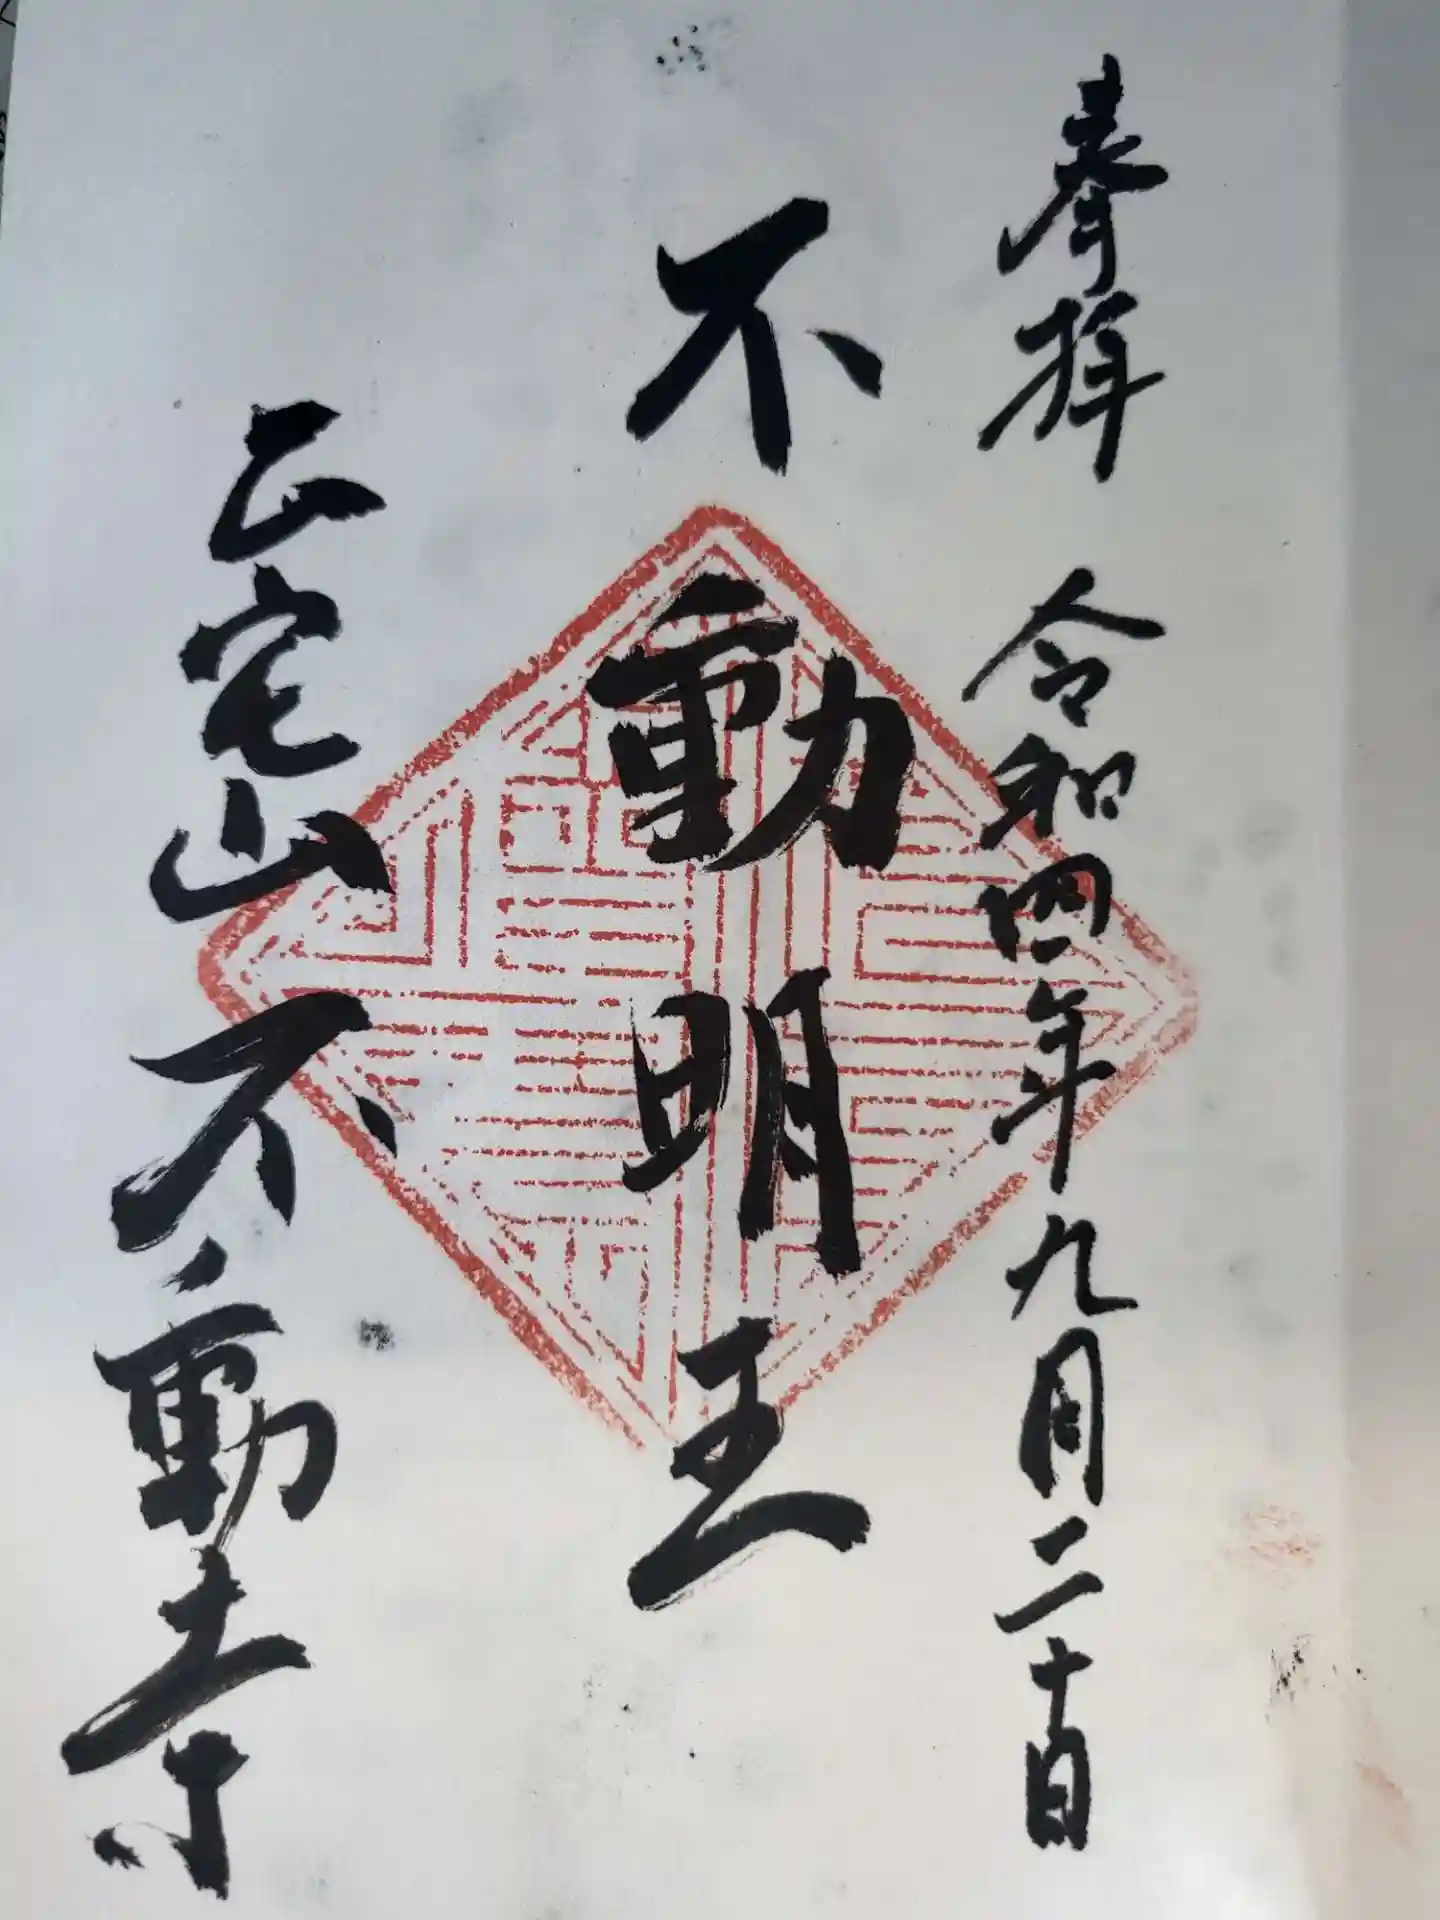 奉拝 令和四年九月二十日
不動明王
正宅山不動寺